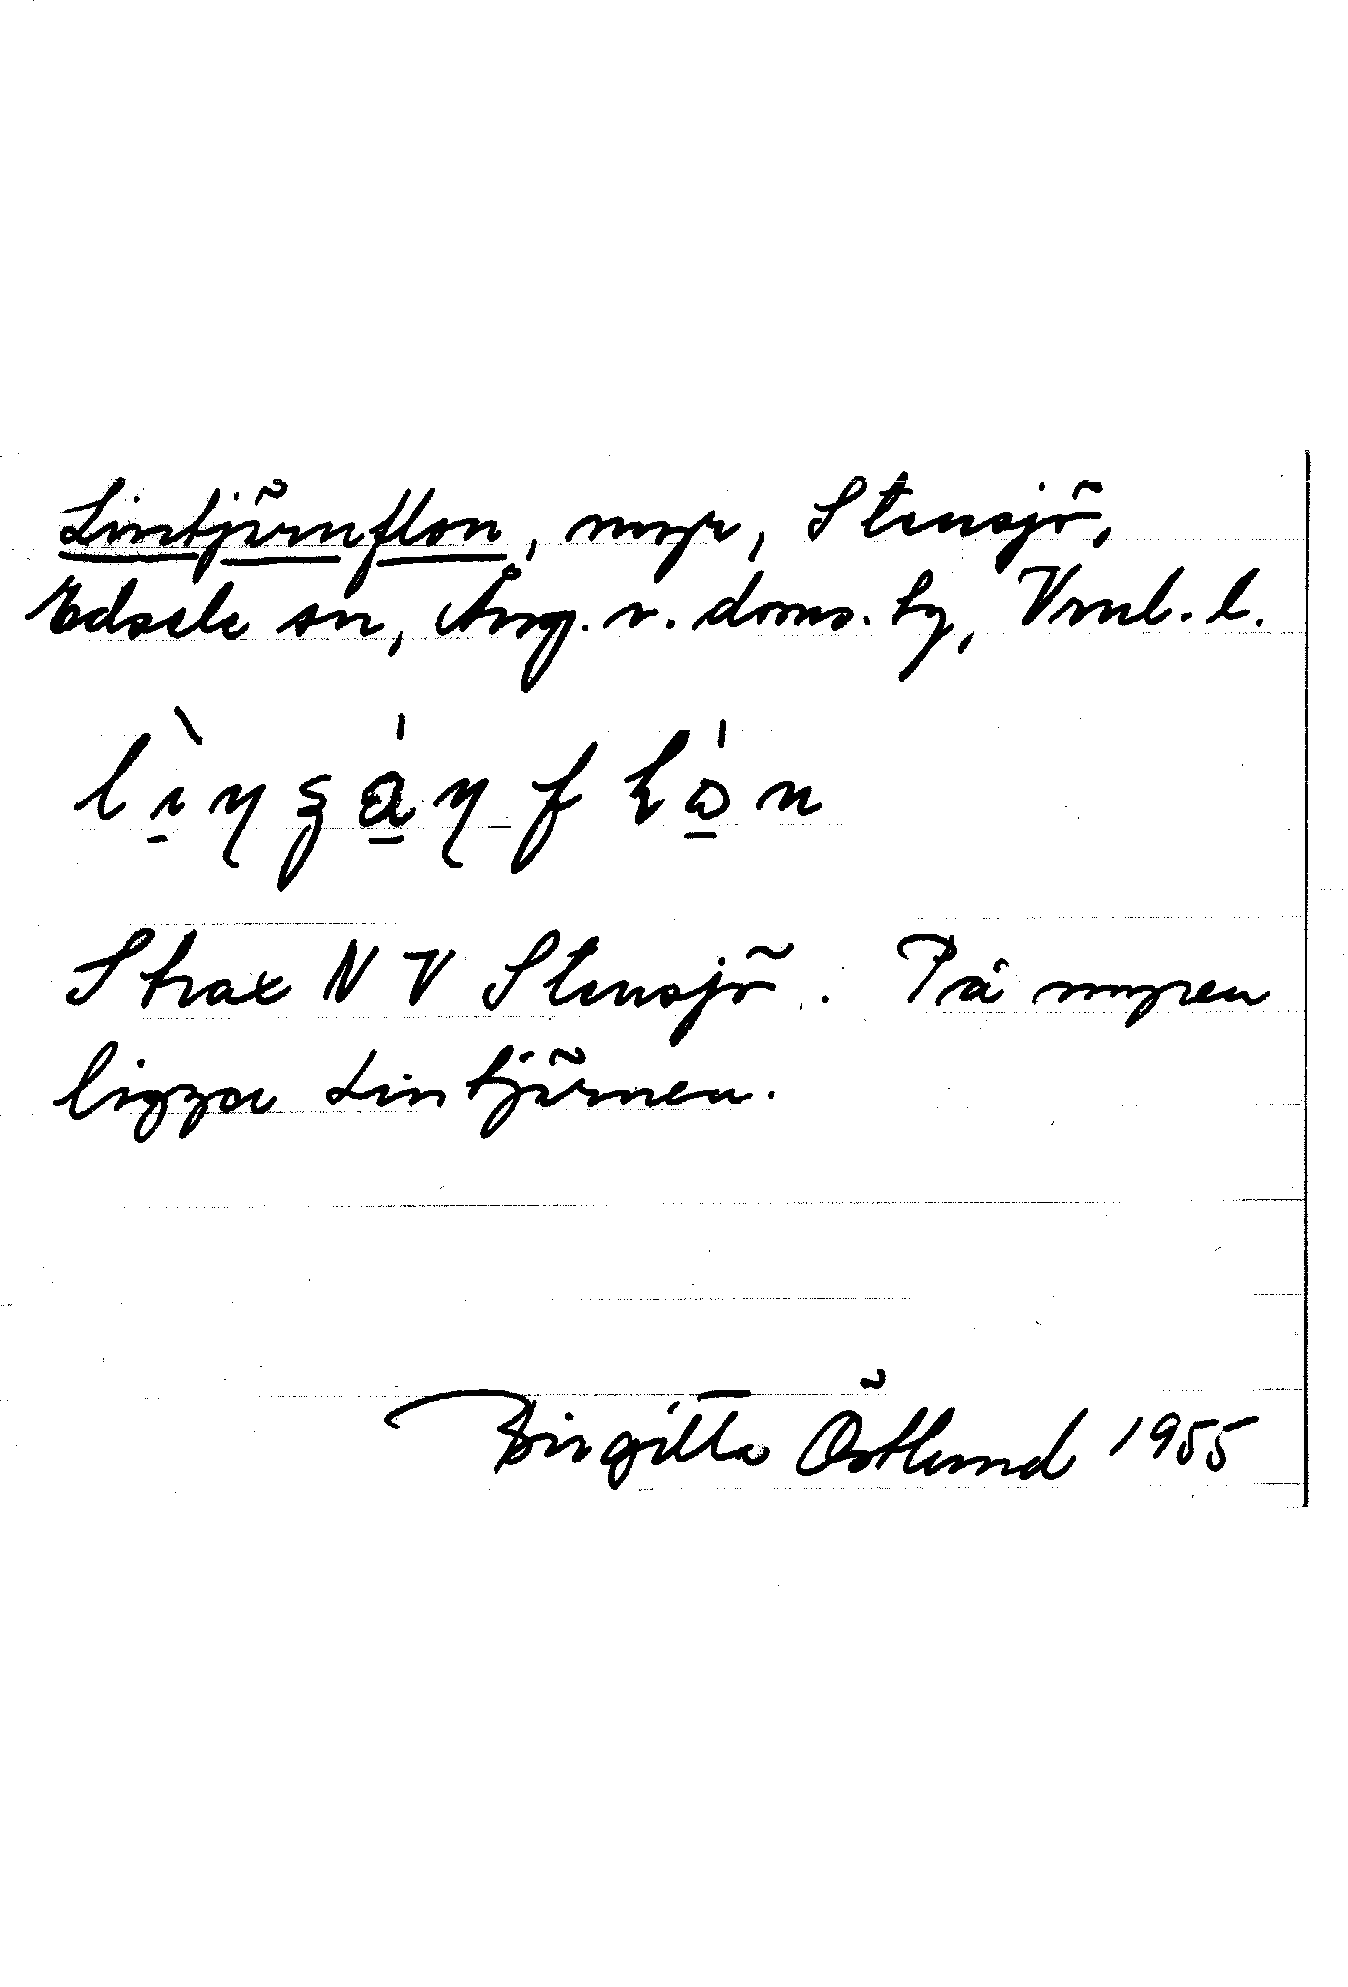 Lintjärnflon, myr, Stensjö,
Edsele sn, Ång. v. doms. hg, Vnl. l.
Strax NV Stensjö. På myren
ligga Lintjärnen.
Birgitta Östlund 1955